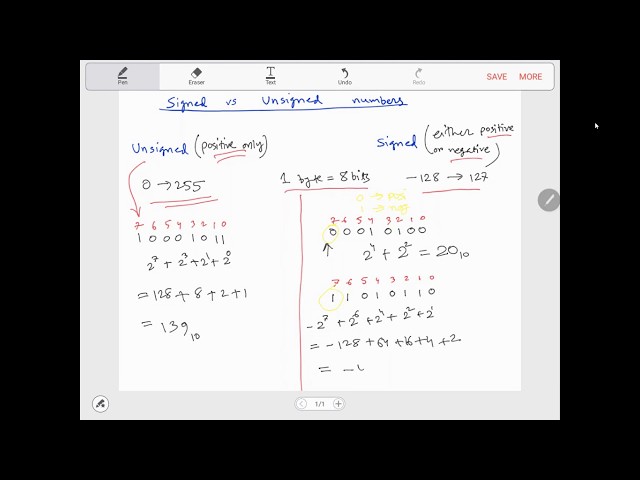 Pen Eraser Text Undo Redo SAVE MORE
Signed vs Unsigned numbers
Unsigned (positive only)
0 → 255
7 6 5 4 3 2 1 0
1 0 0 0 1 0 1 1
2⁷ + 2³ + 2¹ + 2⁰
= 128 + 8 + 2 + 1
= 139₁₀
1 byte = 8 bits
Signed (either positive
or negative)
-128 → 127
0 → posi
1 → neg
7 6 5 4 3 2 1 0
0 0 0 1 0 1 0 0
2⁴ + 2² = 20₁₀
7 6 5 4 3 2 1 0
1 1 0 1 0 1 1 0
-2⁷ + 2⁶ + 2⁴ + 2² + 2¹
= -128 + 64 + 16 + 4 + 2
= -
1/1